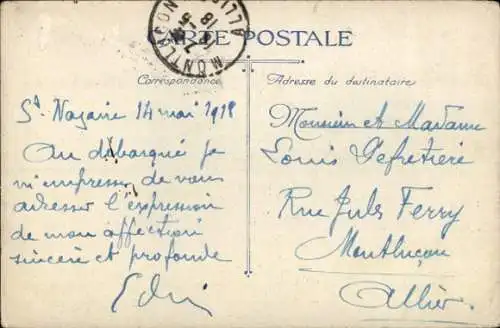 MONTLUÇON
ALLIER
18
CARTE POSTALE
Correspondance
Adresse du destinataire
St Nazaire 14 mai 1918
Au débarqué je
m'empresse de vous
adresser l'expression
de mon affection
sincère et profonde
Monsieur et Madame
Louis
Rue Jules Ferry
Montluçon
Allier